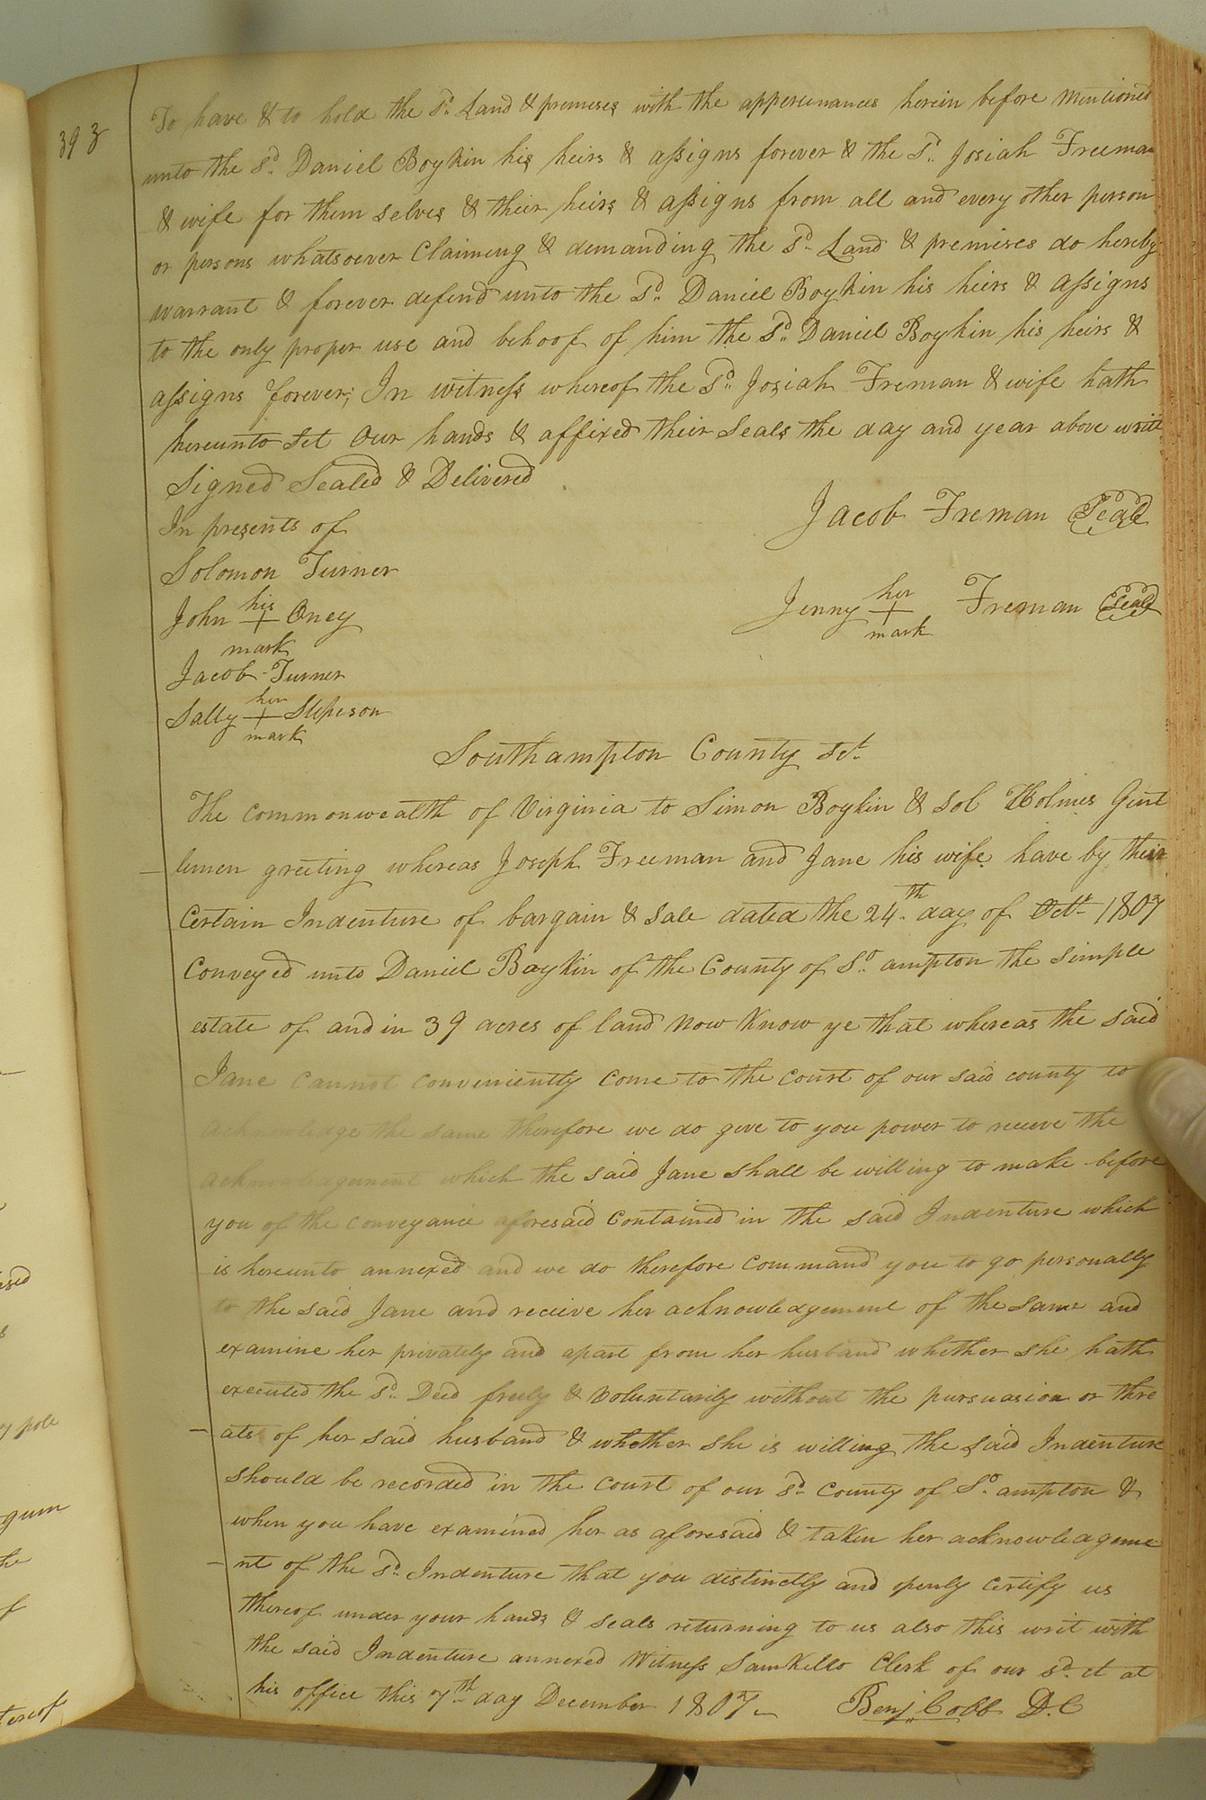 393
To have & to hold the sd. Land & premises with the appertenances herein before Mentioned
unto the sd. Daniel Boykin his heirs & assigns forever & the sd. Josiah Freeman
& wife for them selves & their heirs & assigns from all and every other person
or persons whatsoever Claimeng & demanding the sd. Land & premises do hereby
warrant & forever defend unto the sd. Daniel Boykin his heirs & assigns
to the only proper use and behoof of him the sd. Daniel Boykin his heirs &
assigns forever; In witness whereof the sd. Josiah Freman & wife hath
hereunto set Our hands & affixed their Seals the day and year above writt
Signed Sealed & Delivered
In presents of
Jacob Freman Seal
Solomon Turner
her
his
Jenny + Freman Seal
John + Oney
mark
mark
Jacob Turner
her
Sally + Stepeson
mark
Southampton County Sct.
The commonwealth of Virginia to Simon Boykin & Sol Holmes Gent
lemen greeting whereas Joseph Freeman and Jane his wife have by their
Certain Indenture of bargain & Sale dated the 24th. day of Octr. 1807
Conveyed unto Daniel Boykin of the County of So. ampton the simple
estate of and in 39 acres of land now Know ye that whereas the said
Jane cannot conveniently come to the court of our said county to
acknowledge the same therefore we do give to you power to receive the
acknowledgement which the said Jane shall be willing to make before
you of the conveyance aforesaid contained in the said Indenture which
is hereunto annexed and we do therefore command you to go personally
to the said Jane and recieve her acknowledgement of the same and
examine her privately and apart from her husband whether she hath
executed the sd. Deed freely & voluntarily without the pursuasion or thre
ats of her said husband & whether she is willing the said Indenture
should be recorded in the court of our sd. County of So. ampton &
when you have examined her as aforesaid & taken her acknowledgeme
nt of the sd. Indenture that you distinctly and openly certify us
thereof under your hands & seals returning to us also this writ with
the said Indenture annexed Witness Saml Kello Clerk of our sd. ct at
his office this 7th. day December 1807
Benj. Cobb D.C